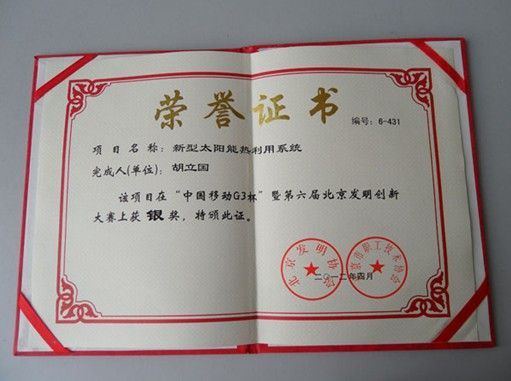 荣誉证书
编号：6-431
项目名称：新型太阳能热利用系统
完成人(单位)：胡立国
该项目在“中国移动G3杯”暨第六届北京发明创新
大赛上获银奖，特颁此证。
北京发明协会
北京市职工技术协会
二〇一二年四月